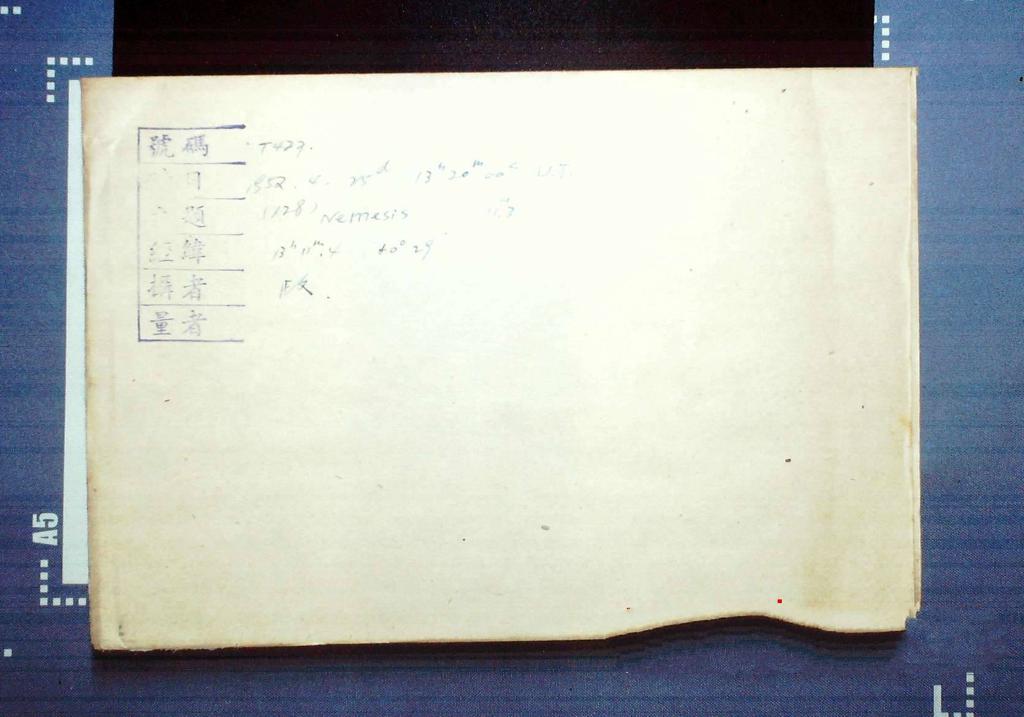 號碼 T427.
日 1952. 4. 25ᵈ 13ʰ20ᵐ00ˢ U.T.
題 (128) Nemesis
經緯 13ʰ11ᵐ.4 +0°29'
攝者
量者
A5